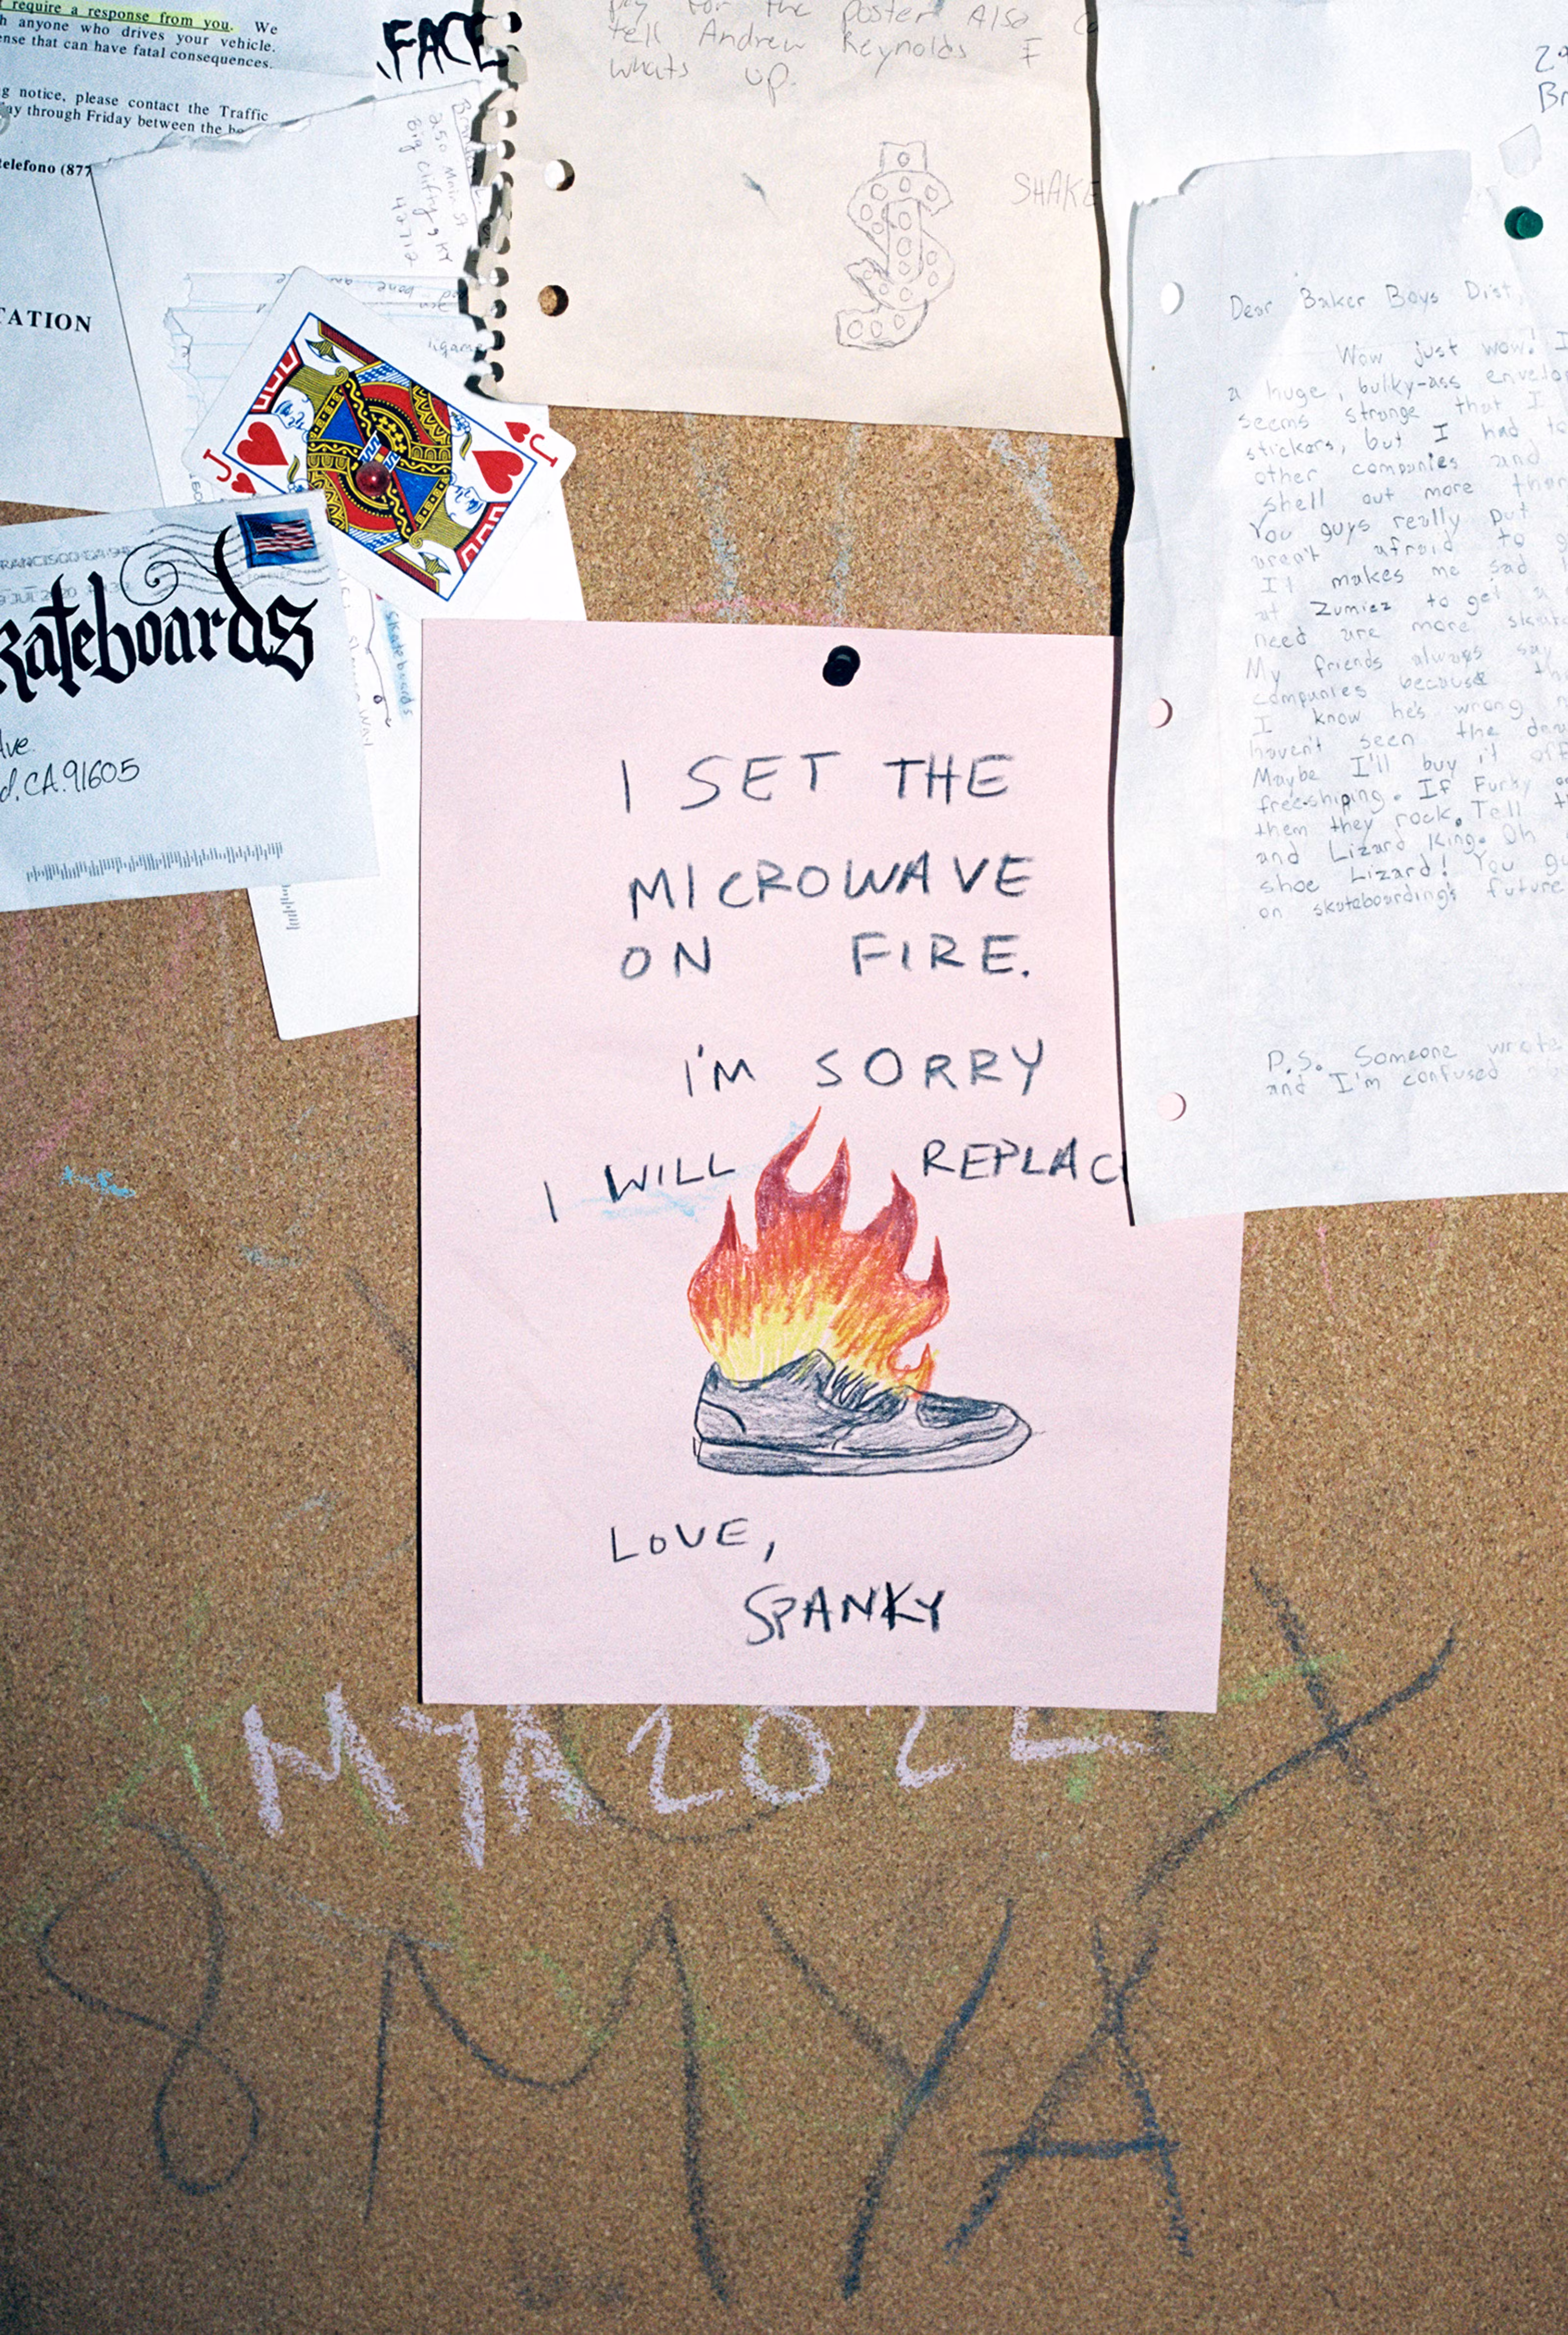 require a response from you. We
anyone who drives your vehicle.
that can have fatal consequences.
notice, please contact the Traffic
through Friday between the
telefono (877
TATION
FACE
250 Main St
Big Clifty, KY
42712
for the poster Also
tell Andrew Reynolds I
whats up.
SHAKE
J
J
skateboards
Ave.
CA. 91605
skateboards
Dear Baker Boys Dist,
Wow just wow! I
a huge, bulky-ass
seems strange that I
stickers, but I had to
other companies and
shell out more
You guys really put
aren't afraid to
It makes me sad
at Zumiez to get a
need are more
My friends always say
companies because
I know he's wrong
haven't seen the
Maybe I'll buy it off
free-shiping. If Furby
them they rock. Tell
and Lizard King. Oh
shoe Lizard! You
on skateboarding's future
P.S. Someone wrote
and I'm confused
I SET THE
MICROWAVE
ON FIRE.
I'M SORRY
I WILL REPLAC
LOVE,
SPANKY
MYA 202
8 MYA